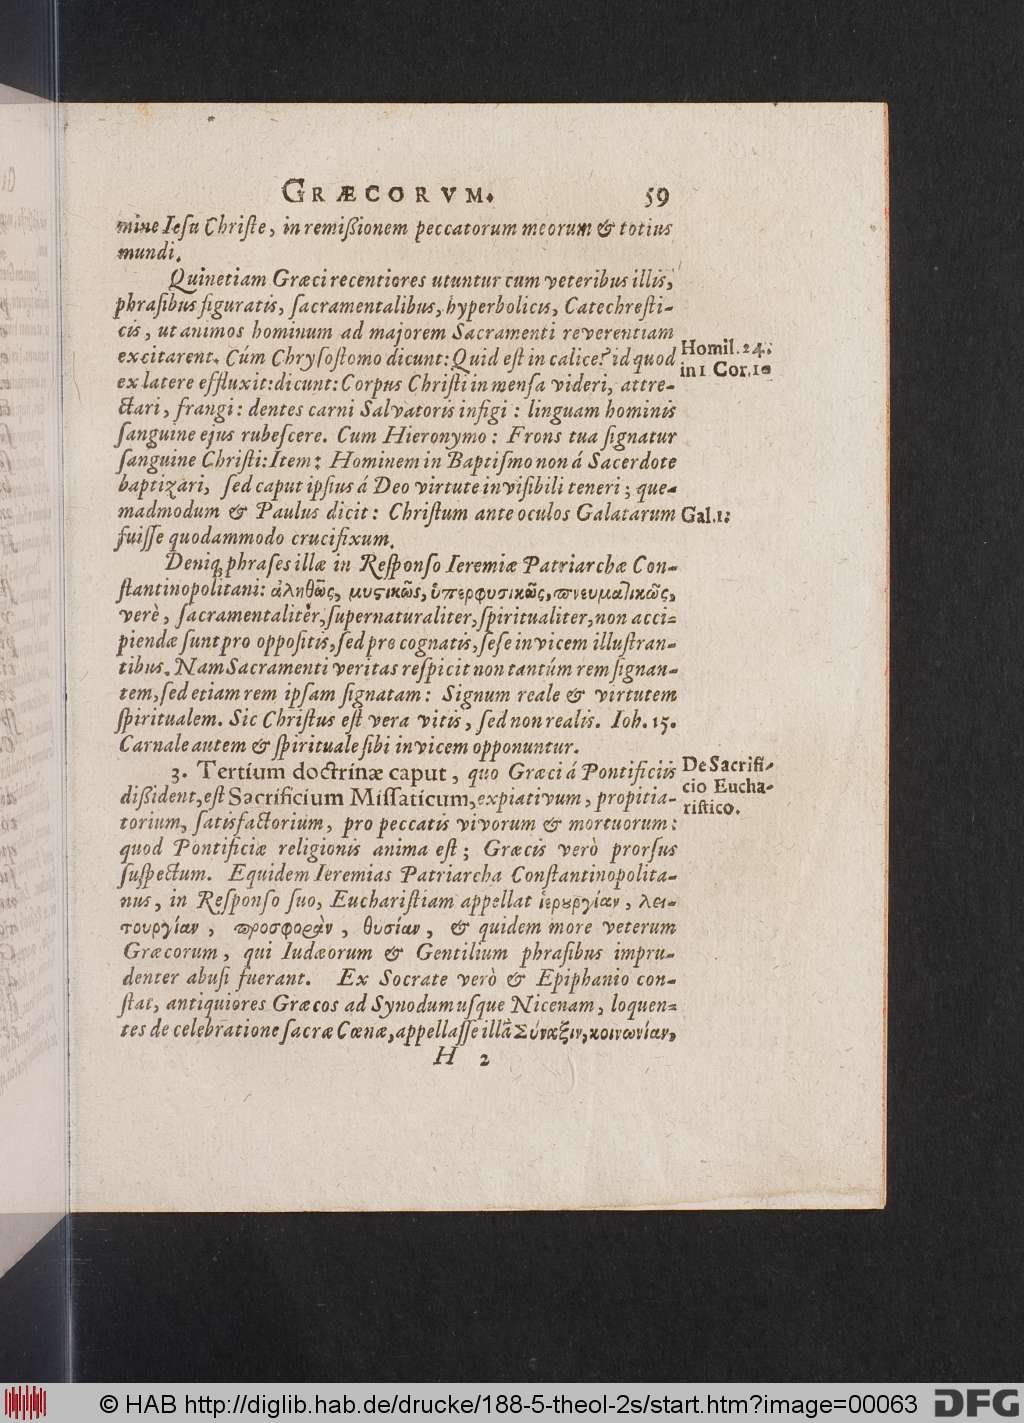 GRÆCORVM. 59
mine Iesu Christe, in remißionem peccatorum meorum & totius
mundi.
Quinetiam Græci recentiores utuntur cum veteribus illis,
phrasibus figuratis, sacramentalibus, hyperbolicis, Catechresti-
cis, ut animos hominum ad majorem Sacramenti reverentiam
excitarent. Cúm Chrysostomo dicunt: Quid est in calice? id quod
Homil. 24.
in 1 Cor. 10
ex latere effluxit: dicunt: Corpus Christi in mensa videri, attre-
ctari, frangi: dentes carni Salvatoris infigi: linguam hominis
sanguine ejus rubescere. Cum Hieronymo: Frons tua signatur
sanguine Christi: Item: Hominem in Baptismo non á Sacerdote
baptizari, sed caput ipsius á Deo virtute invisibili teneri; que-
madmodum & Paulus dicit: Christum ante oculos Galatarum
Gal. 1.
fuisse quodammodo crucifixum.
Deniq; phrases illæ in Responso Ieremiæ Patriarchæ Con-
stantinopolitani: ἀληθῶς, μυςικῶς, ὑπερφυσικῶς, πνευματικῶς,
verè, sacramentaliter, supernaturaliter, spiritualiter, non acci-
piendæ sunt pro oppositis, sed pro cognatis, sese invicem illustran-
tibus. Nam Sacramenti veritas respicit non tantúm rem signan-
tem, sed etiam rem ipsam signatam: Signum reale & virtutem
spiritualem. Sic Christus est vera vitis, sed non realis. Ioh. 15.
Carnale autem & spirituale sibi invicem opponuntur.
3. Tertium doctrinæ caput, quo Græci á Pontificiis
De Sacrifi-
cio Eucha-
ristico.
dißident, est Sacrificium Missaticum, expiativum, propitia-
torium, satisfactorium, pro peccatis vivorum & mortuorum:
quod Pontificiæ religionis anima est; Græcis verò prorsus
suspectum. Equidem Ieremias Patriarcha Constantinopolita-
nus, in Responso suo, Eucharistiam appellat ἱερουργίαν, λει-
τουργίαν, προσφορὰν, θυσίαν, & quidem more veterum
Græcorum, qui Iudæorum & Gentilium phrasibus impru-
denter abusi fuerant. Ex Socrate verò & Epiphanio con-
stat, antiquiores Græcos ad Synodum usque Nicenam, loquen-
tes de celebratione sacræ Cœnæ, appellasse illã Σύναξιν, κοινωνίαν,
H 2
© HAB http://diglib.hab.de/drucke/188-5-theol-2s/start.htm?image=00063
DFG